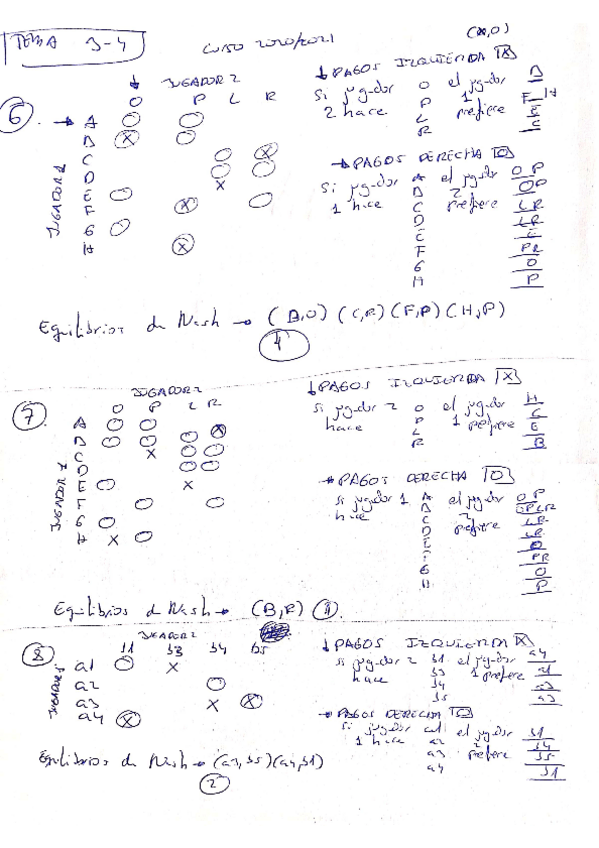 TEMA 3-4
CURSO 2020/2021
(X,O)
6
JUGADOR 2
O P L R
JUGADOR 1
A
B
C
D
E
F
G
H
↓ PAGOS IZQUIERDA X
Si jugador 2 hace
O
P
L
R
el jugador 1 prefiere
B
F H
E
C
→ PAGOS DERECHA O
Si jugador 1 hace
A
B
C
D
E
F
G
H
el jugador 2 prefiere
O P
O P
L R
L R
E
P R
O
P
Equilibrios de Nash → (B,O) (C,R) (F,P) (H,P)
4
7
JUGADOR 2
O P L R
JUGADOR 1
A
B
C
D
E
F
G
H
↓ PAGOS IZQUIERDA X
Si jugador 2 hace
O
P
L
R
el jugador 1 prefiere
H
C
E
B
→ PAGOS DERECHA O
Si jugador 1 hace
A
B
C
D
E
F
G
H
el jugador 2 prefiere
O P
O P L R
L R
L R
O
P R
O
P
Equilibrios de Nash → (B,R) 1
8
JUGADOR 2
S1 S3 S4 S5
JUGADOR 1
a1
a2
a3
a4
↓ PAGOS IZQUIERDA X
Si jugador 2 hace
S1
S3
S4
S5
el jugador 1 prefiere
a4
a1
a3
a3
→ PAGOS DERECHA O
Si jugador 1 hace
a1
a2
a3
a4
el jugador 2 prefiere
S1
S4
S5
S1
Equilibrios de Nash → (a3,S5) (a4,S1)
2